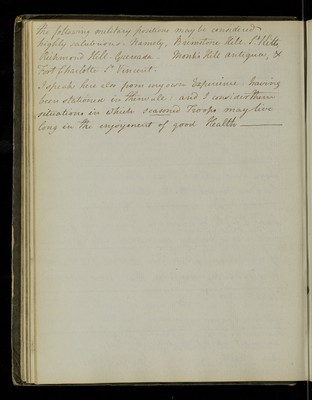 The following military positions may be considered
highly salubrious. Namely, Brimstone Hill St Kitts,
Richmond Hill Grenada. Monks Hill Antigua, &
Fort Charlotte St Vincent.
I speak here also from my own Experience: having
been stationed in them all: and I consider them
situations in which seasoned Troops may live
long in the enjoyment of good Health —